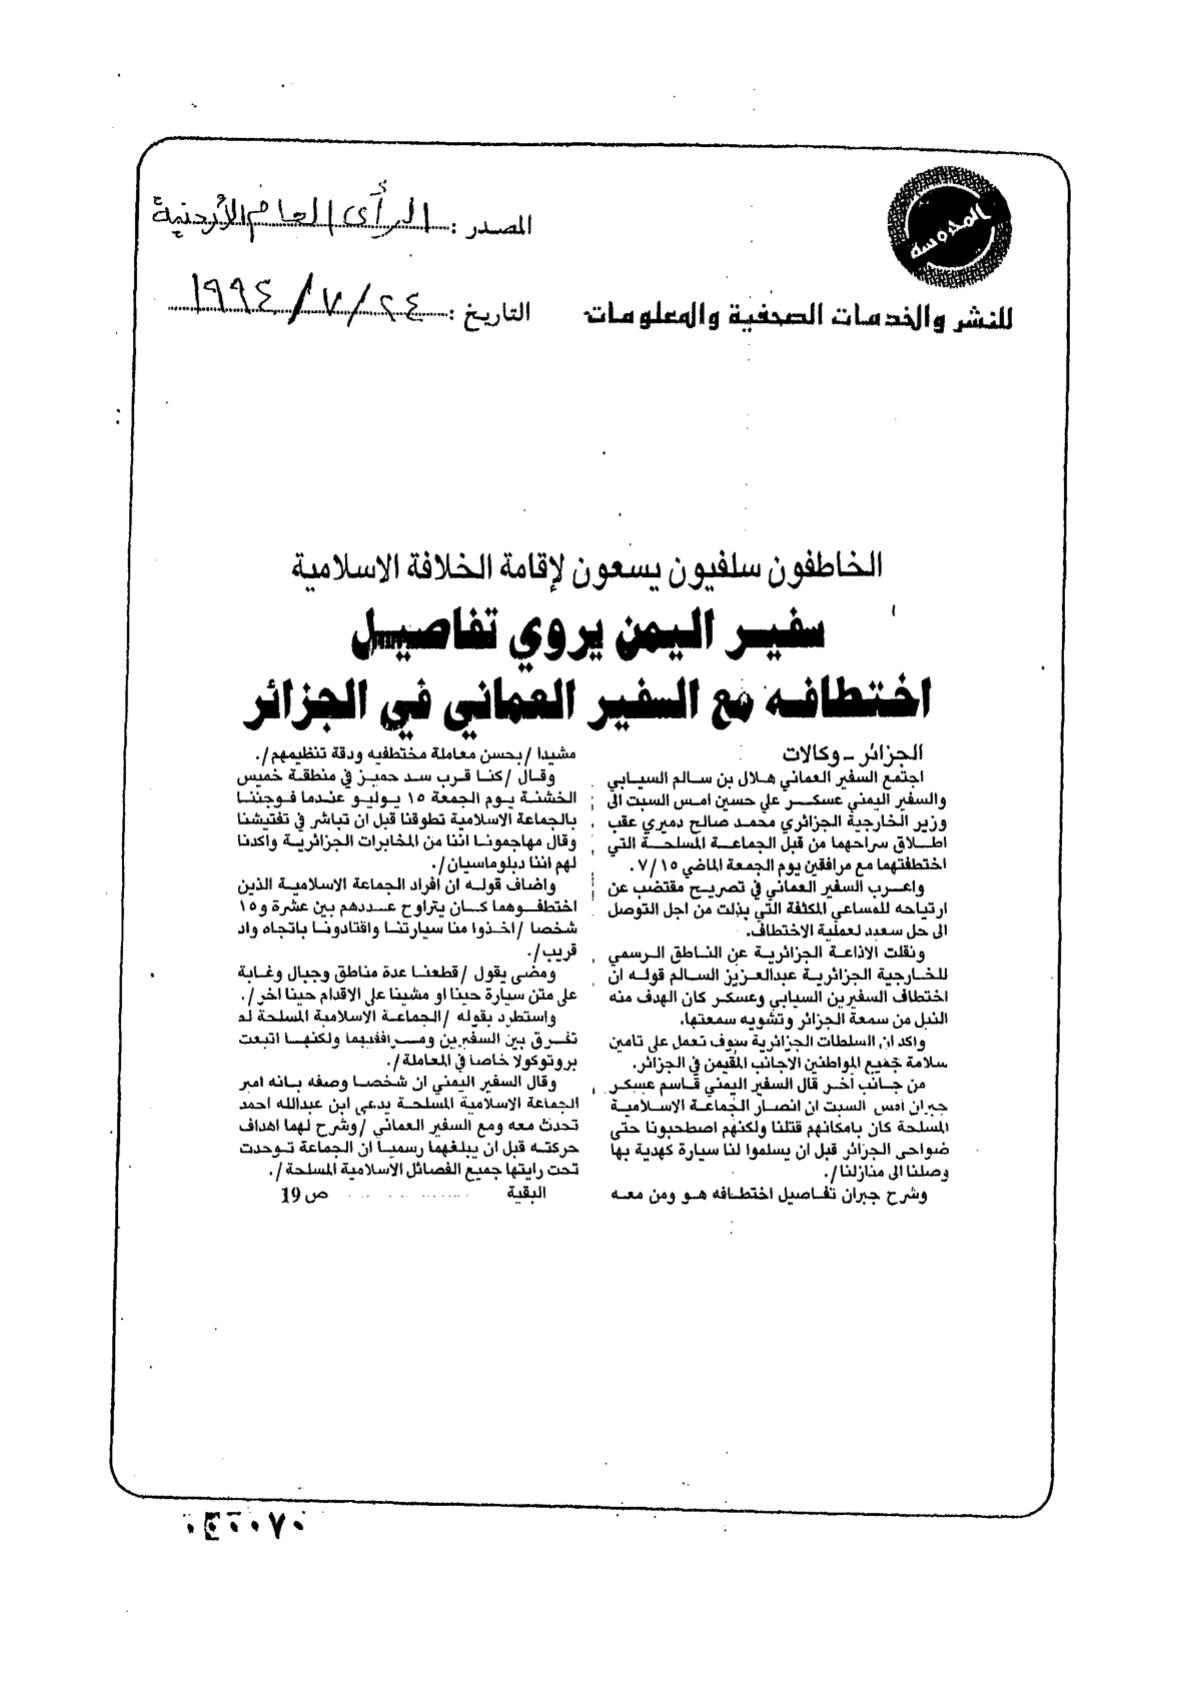 المحروسة
للنشر والخدمات الصحفية والمعلومات
المصدر : الرأى العام الأردنية
التاريخ : ٢٤ / ٧ / ١٩٩٤
الخاطفون سلفيون يسعون لإقامة الخلافة الاسلامية
سفير اليمن يروي تفاصيل
اختطافه مع السفير العماني في الجزائر
الجزائر - وكالات
اجتمع السفير العماني هلال بن سالم السيابي
والسفير اليمني عسكر علي حسين امس السبت الى
وزير الخارجية الجزائري محمد صالح دمبري عقب
اطلاق سراحهما من قبل الجماعة المسلحة التي
اختطفتهما مع مرافقين يوم الجمعة الماضي ٧/١٥.
واعرب السفير العماني في تصريح مقتضب عن
ارتياحه للمساعي المكثفة التي بذلت من اجل التوصل
الى حل سعيد لعملية الاختطاف.
ونقلت الاذاعة الجزائرية عن الناطق الرسمي
للخارجية الجزائرية عبدالعزيز السالم قوله ان
اختطاف السفيرين السيابي وعسكر كان الهدف منه
النيل من سمعة الجزائر وتشويه سمعتها.
واكد ان السلطات الجزائرية سوف تعمل على تامين
سلامة جميع المواطنين الاجانب المقيمن في الجزائر.
من جانب آخر قال السفير اليمني قاسم عسكر
جبران أمس السبت ان انصار الجماعة الاسلامية
المسلحة كان بامكانهم قتلنا ولكنهم اصطحبونا حتى
ضواحى الجزائر قبل ان يسلموا لنا سيارة كهدية بها
وصلنا الى منازلنا/.
وشرح جبران تفاصيل اختطافه هو ومن معه
مشيدا /بحسن معاملة مختطفيه ودقة تنظيمهم/.
وقال /كنا قرب سد حميز في منطقة خميس
الخشنة يوم الجمعة ١٥ يوليو عندما فوجئنا
بالجماعة الاسلامية تطوقنا قبل ان تباشر في تفتيشنا
وقال مهاجمونا اننا من المخابرات الجزائرية واكدنا
لهم اننا دبلوماسيان/.
واضاف قوله ان افراد الجماعة الاسلامية الذين
اختطفوهما كان يتراوح عددهم بين عشرة و١٥
شخصا /اخذوا منا سيارتنا واقتادونا باتجاه واد
قريب/.
ومضى يقول /قطعنا عدة مناطق وجبال وغابة
على متن سيارة حينا او مشينا على الاقدام حينا اخر/.
واستطرد بقوله /الجماعة الاسلامية المسلحة لم
تفرق بين السفيرين ومرافقيهما ولكنها اتبعت
بروتوكولا خاصا في المعاملة/.
وقال السفير اليمني ان شخصا وصفه بانه امير
الجماعة الاسلامية المسلحة يدعى ابن عبدالله احمد
تحدث معه ومع السفير العماني /وشرح لهما اهداف
حركته قبل ان يبلغهما رسميا ان الجماعة توحدت
تحت رايتها جميع الفصائل الاسلامية المسلحة/.
البقية ص 19